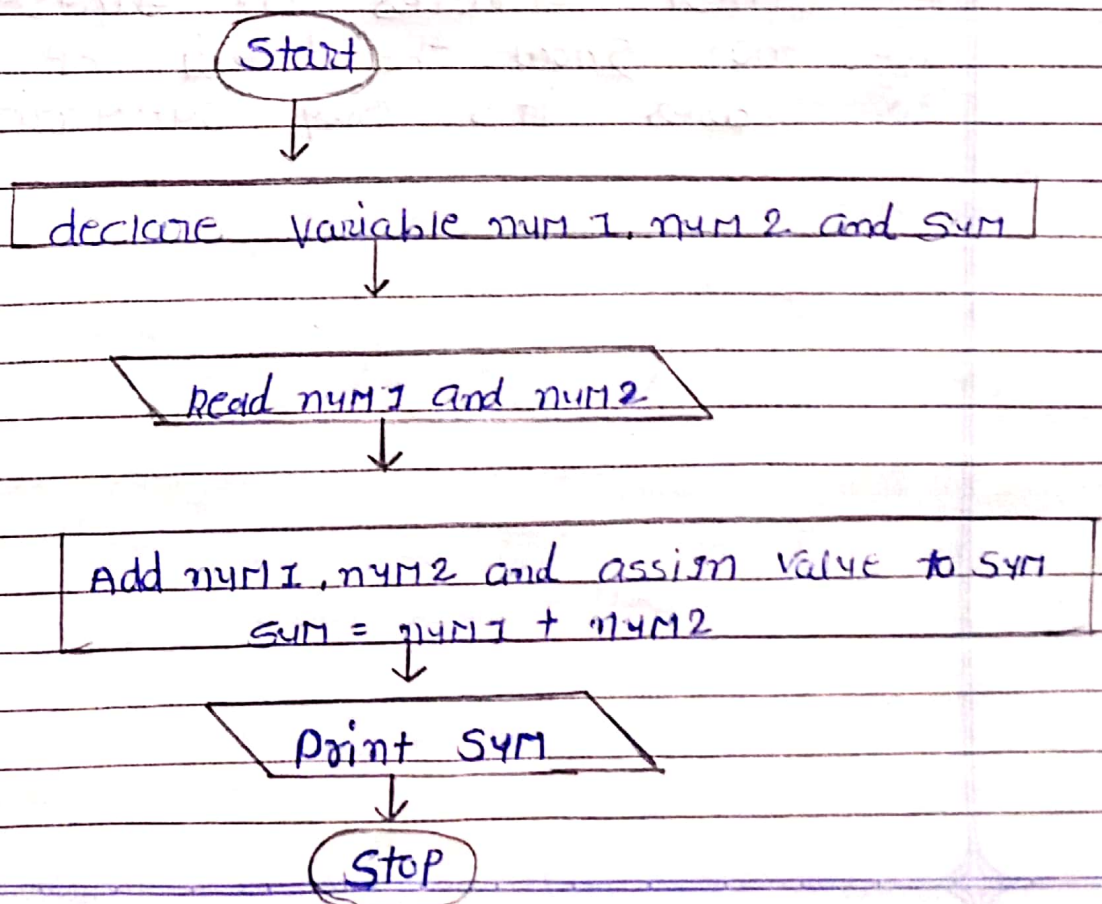 Start
declare variable num 1, num 2 and sum
Read num 1 and num2
Add num1, num2 and assign value to sum
sum = num1 + num2
Print sum
Stop